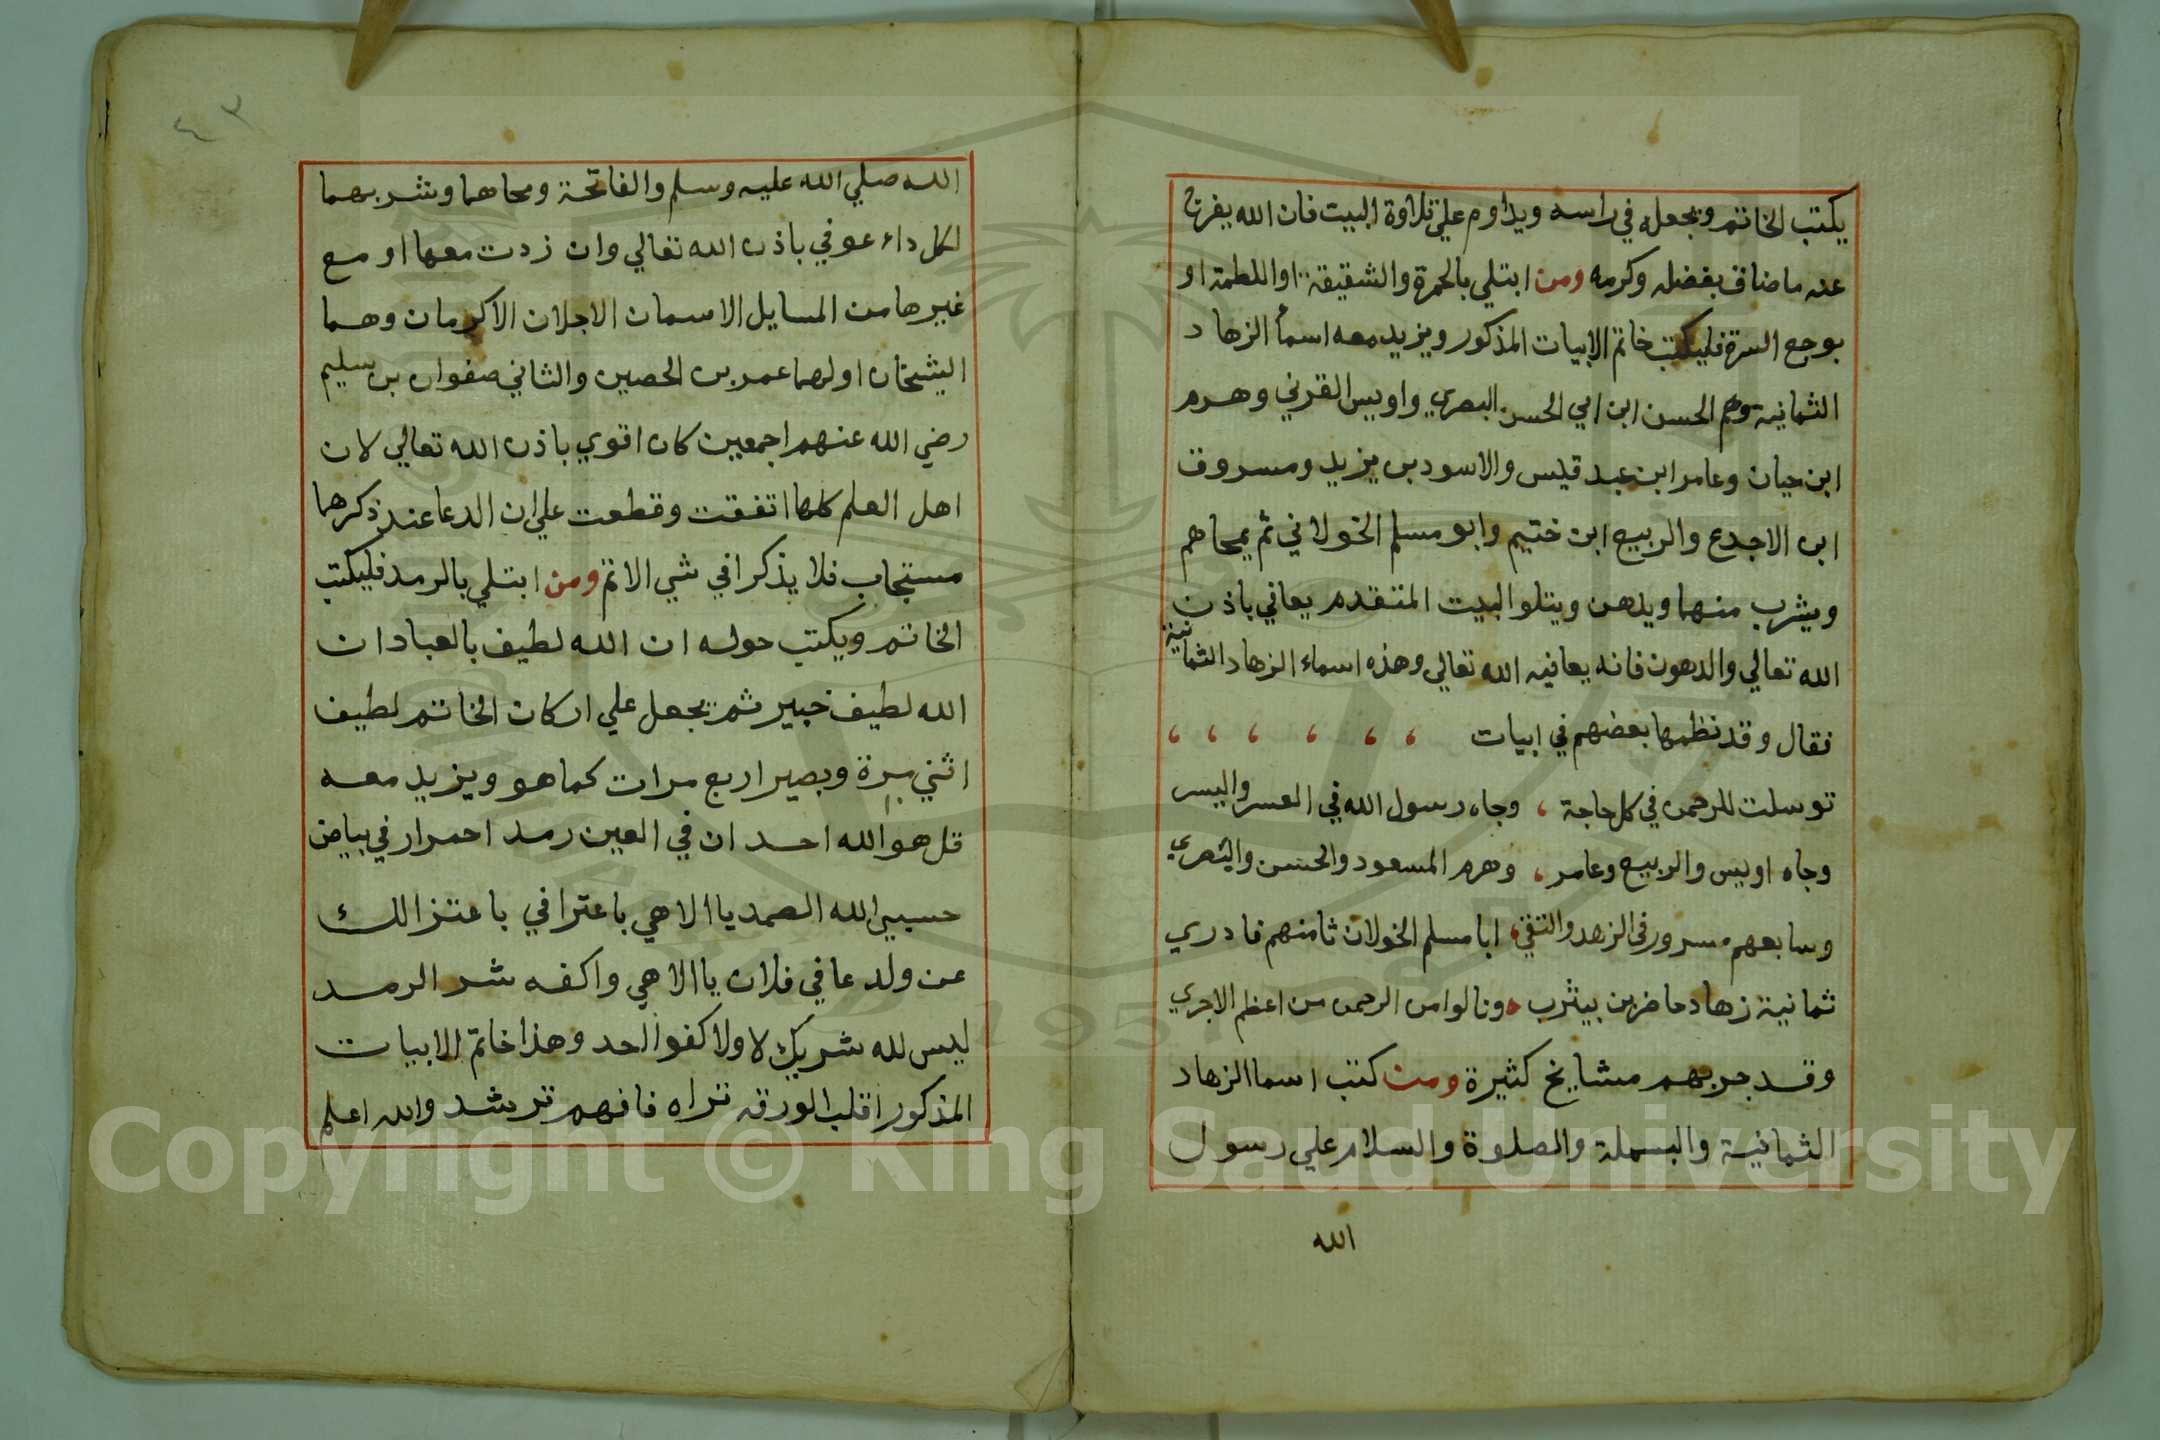 يكتب الخاتم ويجعله في راسه ويداوم علي تلاوة البيت فان الله يفرج
عنه ما ضاق بفضله وكرمه ومن ابتلي بالحمرة والشقيقة او اللطمة او
بوجع السرة فليكتب خاتم الابيات المذكور ويزيد معه اسماً الزهاد
الثمانية وهم الحسن ابن ابي الحسن البصري واويس القرني وهرم
ابن حيان وعامر ابن عبد قيس والاسود بن يزيد ومسروق
ابن الاجدع والربيع ابن ختيم وابو مسلم الخولاني ثم يمحاهم
ويشرب منهما ويدهن ويتلوا البيت المتقدم يعافي باذن
الله تعالي والدهون فانه يعافيه الله تعالي وهذه اسماء الزهاد الثمانية
فقال وقد نظمها بعضهم في ابيات
توسلت للرحمن في كل حاجة ، وجاه رسول الله في العسر واليسر
وجاه اويس والربيع وعامر ، وهرم المسعود والحسن
وسابعهم مسرور في الزهد والتقي ، ابا مسلم الخولان ثامنهم فادري
ثمانية زهاد حاضرين بيثرب ، ونالوا من الرحمن من اعظم الاجري
وقد جربهم مشايخ كثيرة ومن كتب اسما الزهاد
الثمانية والبسملة والصلوة والسلام علي رسول
الله
٤٣
الله صلي الله عليه وسلم والفاتحة ومحاهما وشربهما
لكل داء عوفي باذن الله تعالي وان زدت معها او مع
غيرها من المسايل الاسمان الاجلان الاكرمان وهما
الشيخان اولهما عمر بن الحصين والثاني صفوان بن سليم
رضي الله عنهم اجمعين كان اقوي باذن الله تعالي لان
اهل العلم كلها اتفقت وقطعت علي ان الدعا عند ذكرهما
مستجاب فلا يذكرا في شي الا تم ومن ابتلي بالرمد فليكتب
الخاتم ويكتب حوله ان الله لطيف بالعباد ان
الله لطيف خبير ثم يجعل علي اركان الخاتم لطيف
اثني مرة وبصير اربع مرات كما هو ويزيد معه
قل هو الله احد ان في العين رمد احمرار في بياض
حسبي الله الصمد يا الاهي باعترافي باعتزالك
عن ولد عافي فلان يا الاهي واكفه شر الرمد
ليس لله شريك لا ولا كفوا احد وهذا خاتم الابيات
المذكور اقلب الورقه تراه فافهم ترشد والله اعلم
Copyright © King Saud University